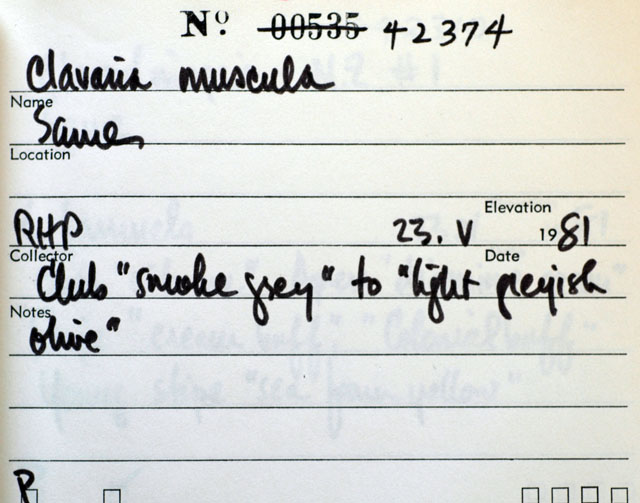 Nº 00535 42374
Clavaria muscula
Name
Same
Location
Elevation
RHP 23. V 1981
Collector Date
Club "smoke grey" to "light greyish
Notes
olive"
R